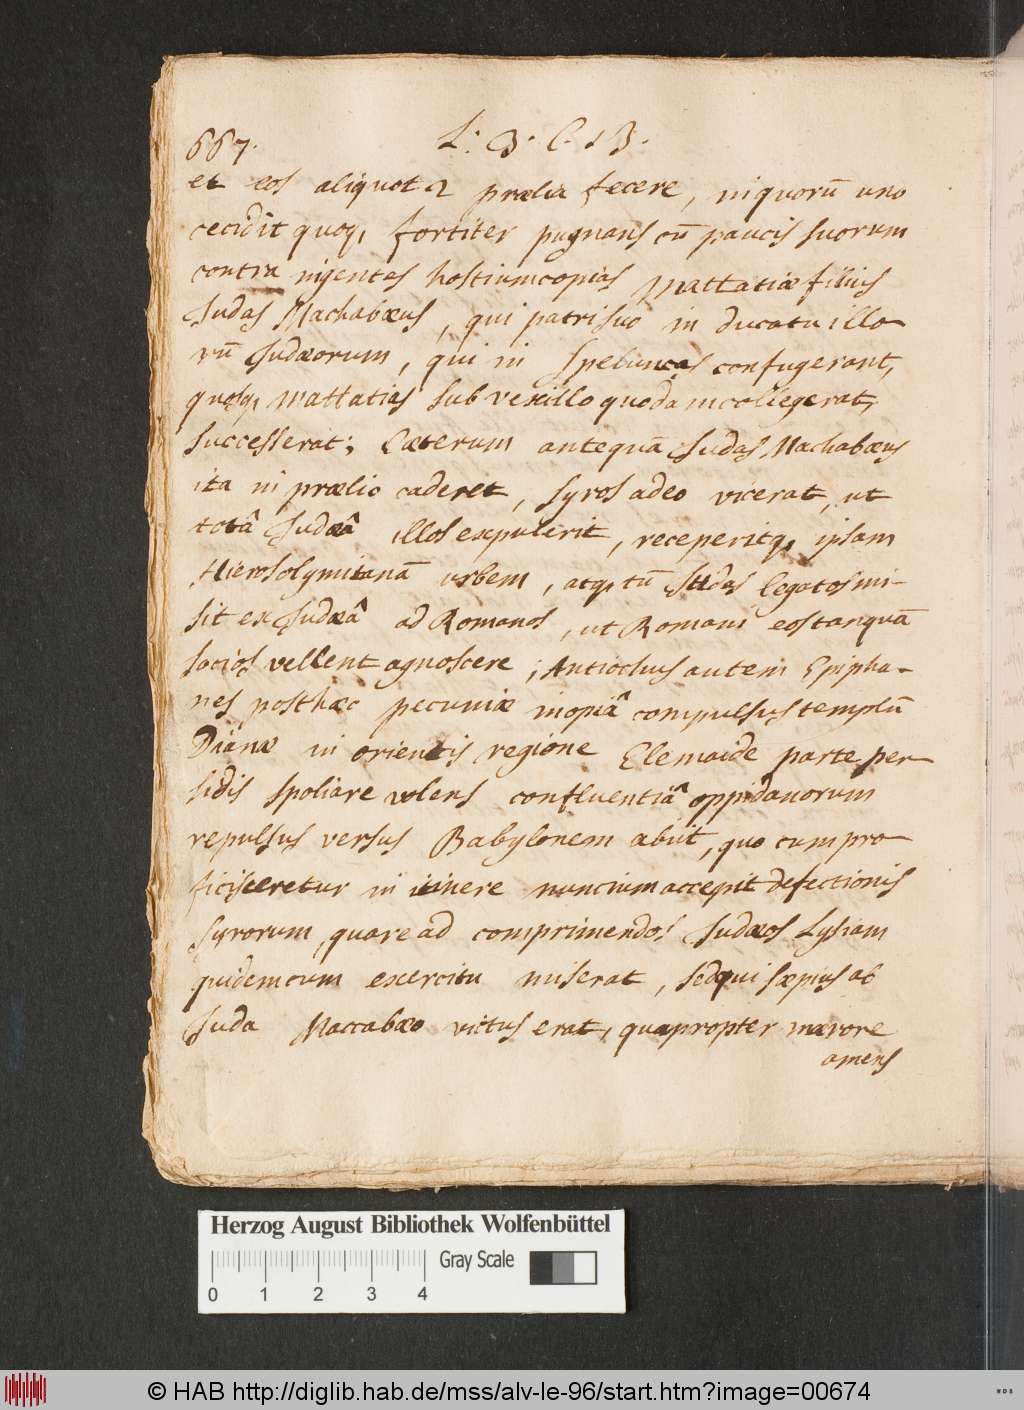 667. L: 3. C. 13.
et eos aliquot 2 prælia fecere, in quorũ uno
cecidit quoq, fortiter pugnans cũ paucis suorum
contra ingentes hostium copias Mattatiæ filius
Judas Machabæus, qui patri suo in ducatu illo-
rũ Judæorum, qui in speluncas confugerant,
quosq, Mattatias sub vexillo quodam collegerat,
successerat; Cæterum antequã Judas Machabæus
ita in prælio caderet, Syros adeo vicerat, ut
totâ Judæâ illos expulerit, receperitq, ipsam
Hierosolymitanã urbem, atq, tũ Judas legatos mi-
sit ex Judæâ ad Romanos, ut Romani eos tanquã
socios vellent agnoscere; Antiochus autem Epipha-
nes posthæc pecuniæ inopiâ compulsus templũ
Dianæ in orientis regione Elemaide parte Per-
sidis spoliare volens confluentiâ oppidanorum
repulsus versus Babylonem abiit, quo cum pro-
ficisceretur in itinere nuncium accepit defectionis
Syrorum, quare ad comprimendos Judæos Lysiam
quidem cum exercitu miserat, sed qui sæpius ab
Juda Maccabæo victus erat, quapropter mærore
amens
Herzog August Bibliothek Wolfenbüttel
Gray Scale
0 1 2 3 4
© HAB http://diglib.hab.de/mss/alv-le-96/start.htm?image=00674